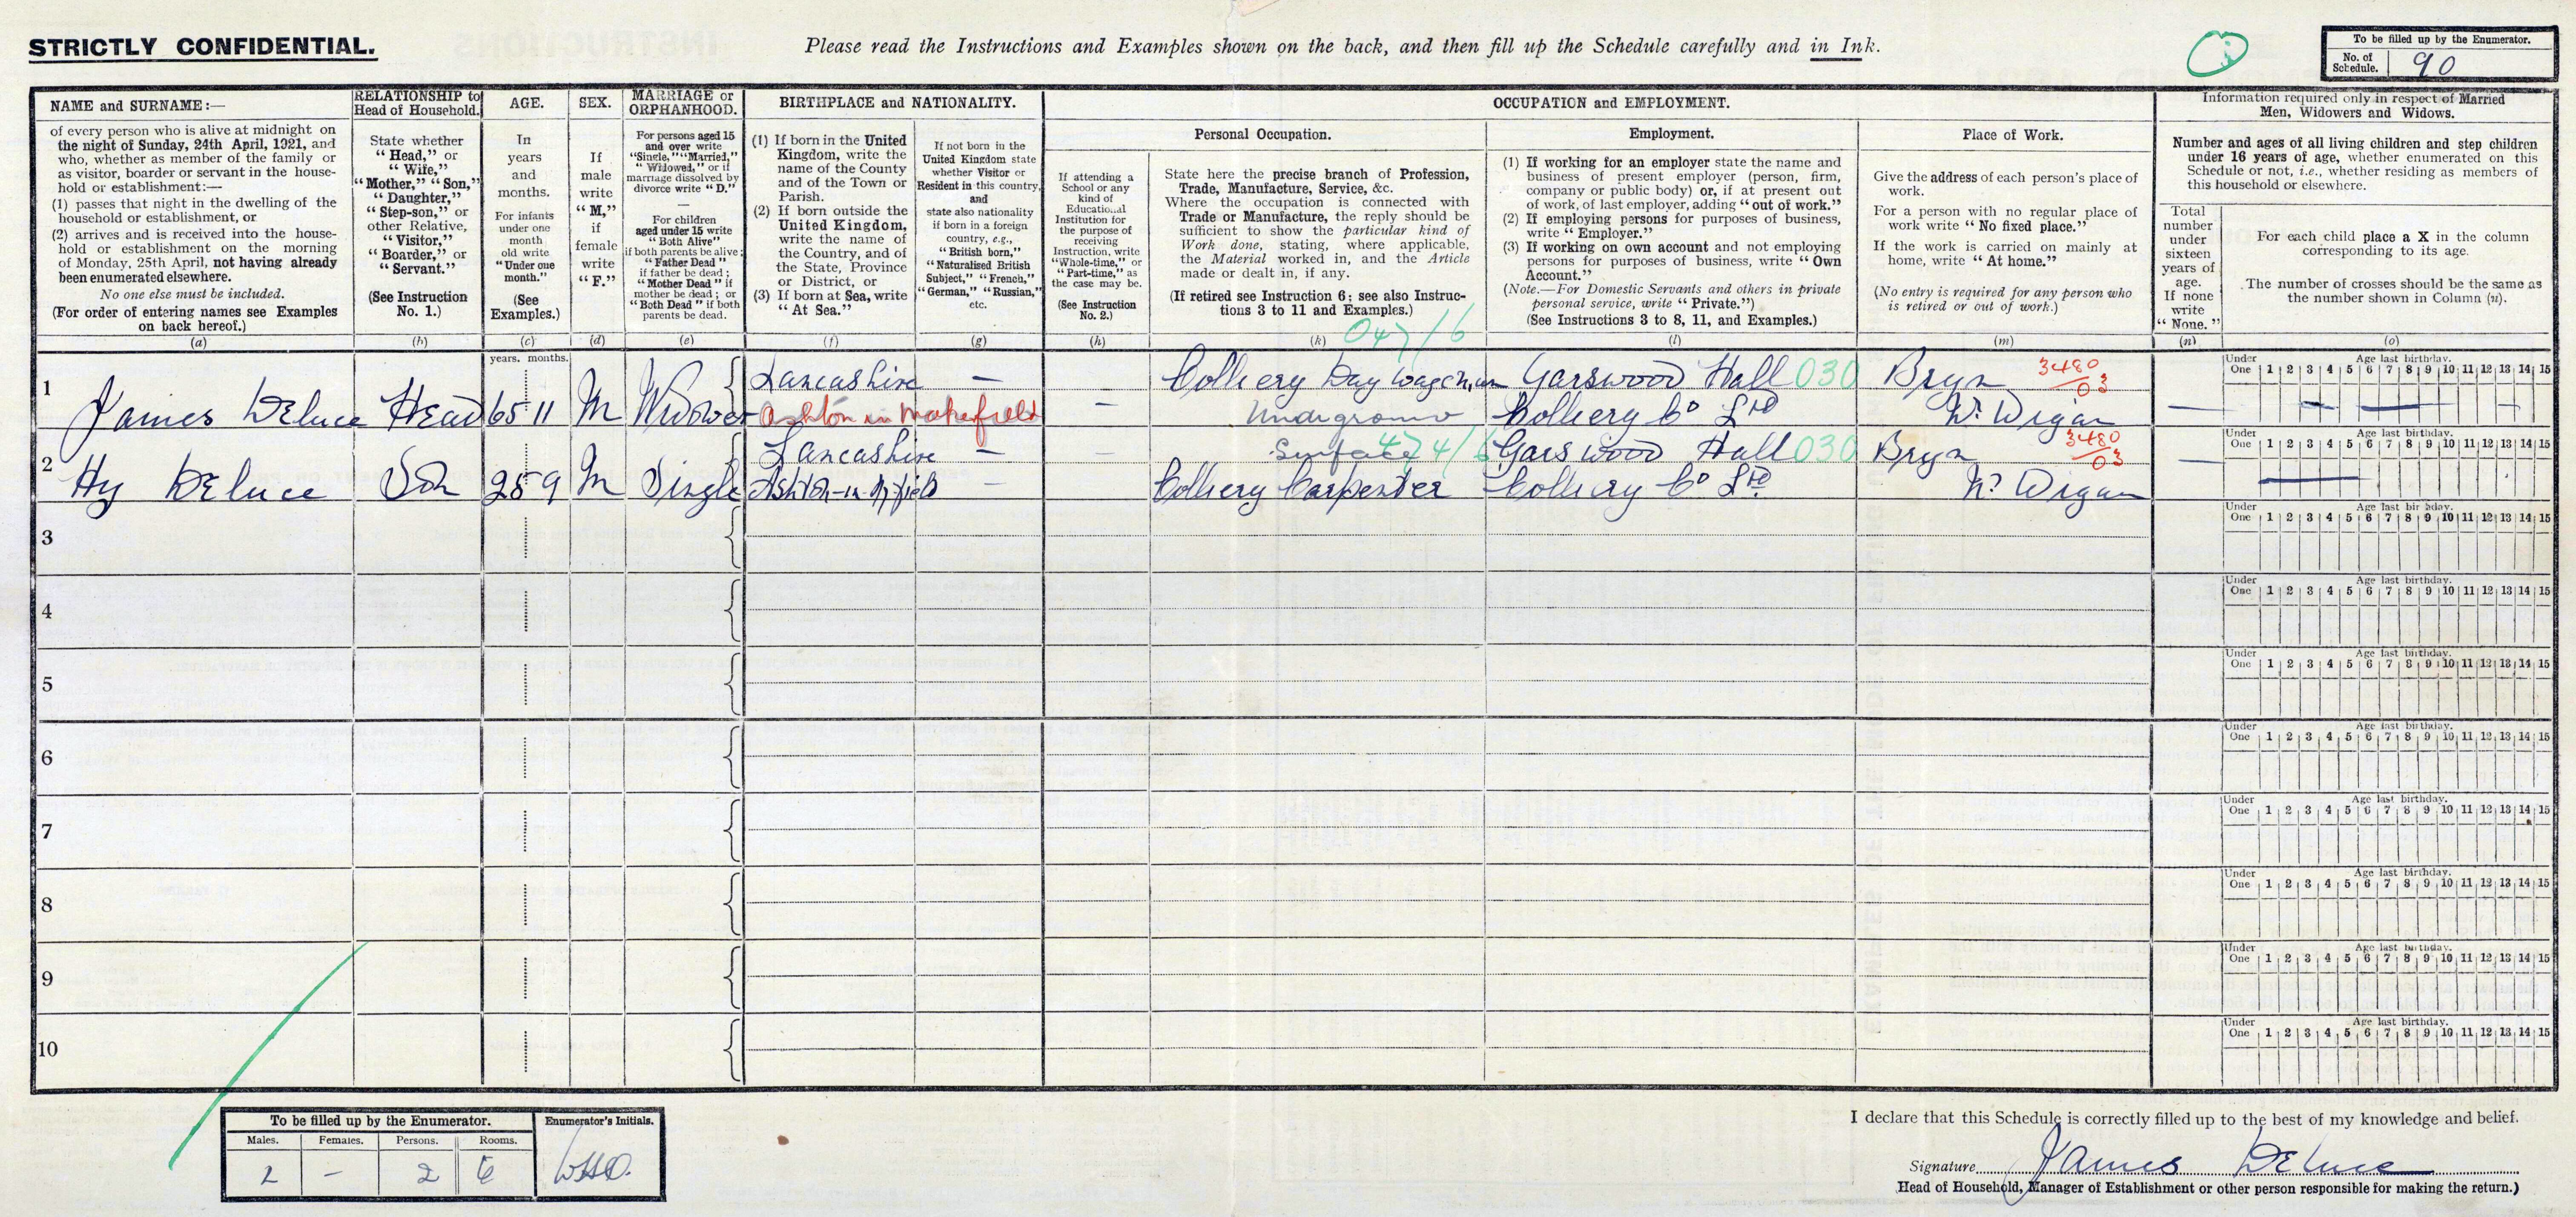 STRICTLY CONFIDENTIAL.
Please read the Instructions and Examples shown on the back, and then fill up the Schedule carefully and in Ink.
To be filled up by the Enumerator.
No. of Schedule. 90
NAME and SURNAME:—
of every person who is alive at midnight on
the night of Sunday, 24th April, 1921, and
who, whether as member of the family or
as visitor, boarder or servant in the house-
hold or establishment:—
(1) passes that night in the dwelling of the
household or establishment, or
(2) arrives and is received into the house-
hold or establishment on the morning
of Monday, 25th April, not having already
been enumerated elsewhere.
No one else must be included.
(For order of entering names see Examples
on back hereof.)
(a)
RELATIONSHIP to
Head of Household.
State whether
"Head," or
"Wife,"
"Mother," "Son,"
"Daughter,"
"Step-son," or
other Relative,
"Visitor,"
"Boarder," or
"Servant."
(See Instruction
No. 1.)
(b)
AGE.
In
years
and
months.
For infants
under one
month
old write
"Under one
month."
(See
Examples.)
(c)
SEX.
If
male
write
"M,"
if
female
write
"F."
(d)
MARRIAGE or
ORPHANHOOD.
For persons aged 15
and over write
"Single," "Married,"
"Widowed," or if
marriage dissolved by
divorce write "D."
—
For children
aged under 15 write
"Both Alive"
if both parents be alive;
"Father Dead"
if father be dead;
"Mother Dead" if
mother be dead; or
"Both Dead" if both
parents be dead.
(e)
BIRTHPLACE and NATIONALITY.
(1) If born in the United
Kingdom, write the
name of the County
and of the Town or
Parish.
(2) If born outside the
United Kingdom,
write the name of
the Country, and of
the State, Province
or District, or
(3) If born at Sea, write
"At Sea."
(f)
If not born in the
United Kingdom state
whether Visitor or
Resident in this country,
and
state also nationality
if born in a foreign
country, e.g.,
"British born,"
"Naturalised British
Subject," "French,"
"German," "Russian,"
etc.
(g)
OCCUPATION and EMPLOYMENT.
If attending a
School or any
kind of
Educational
Institution for
the purpose of
receiving
Instruction, write
"Whole-time," or
"Part-time," as
the case may be.
(See Instruction
No. 2.)
(h)
Personal Occupation.
State here the precise branch of Profession,
Trade, Manufacture, Service, &c.
Where the occupation is connected with
Trade or Manufacture, the reply should be
sufficient to show the particular kind of
Work done, stating, where applicable,
the Material worked in, and the Article
made or dealt in, if any.
(If retired see Instruction 6: see also Instruc-
tions 3 to 11 and Examples.)
(k)
047/6
Employment.
(1) If working for an employer state the name and
business of present employer (person, firm,
company or public body) or, if at present out
of work, of last employer, adding "out of work."
(2) If employing persons for purposes of business,
write "Employer."
(3) If working on own account and not employing
persons for purposes of business, write "Own
Account."
(Note.—For Domestic Servants and others in private
personal service, write "Private.")
(See Instructions 3 to 8, 11, and Examples.)
(l)
Place of Work.
Give the address of each person's place of
work.
For a person with no regular place of
work write "No fixed place."
If the work is carried on mainly at
home, write "At home."
(No entry is required for any person who
is retired or out of work.)
(m)
Information required only in respect of Married
Men, Widowers and Widows.
Number and ages of all living children and step children
under 16 years of age, whether enumerated on this
Schedule or not, i.e., whether residing as members of
this household or elsewhere.
Total
number
under
sixteen
years of
age.
If none
write
"None."
(n)
For each child place a X in the column
corresponding to its age.
The number of crosses should be the same as
the number shown in Column (n).
(o)
years. months.
Under One Age last birthday. 1 2 3 4 5 6 7 8 9 10 11 12 13 14 15
1 Lancashire — — Colliery Day wageman Garswood Hall 030 Bryn 3480/03
James DEluce Head 65 11 M Widower Ashton in Makerfield — Underground Colliery Co Ltd Nr Wigan —
Under One Age last birthday. 1 2 3 4 5 6 7 8 9 10 11 12 13 14 15
2 Lancashire — — Surface 474/6 Garswood Hall 030 Bryn 3480/03 —
Hy DEluce Son 25 9 M Single Ashton-in-M'field — Colliery Carpenter Colliery Co Ltd Nr Wigan
3 Under One Age last birthday. 1 2 3 4 5 6 7 8 9 10 11 12 13 14 15
4 Under One Age last birthday. 1 2 3 4 5 6 7 8 9 10 11 12 13 14 15
5 Under One Age last birthday. 1 2 3 4 5 6 7 8 9 10 11 12 13 14 15
6 Under One Age last birthday. 1 2 3 4 5 6 7 8 9 10 11 12 13 14 15
7 Under One Age last birthday. 1 2 3 4 5 6 7 8 9 10 11 12 13 14 15
8 Under One Age last birthday. 1 2 3 4 5 6 7 8 9 10 11 12 13 14 15
9 Under One Age last birthday. 1 2 3 4 5 6 7 8 9 10 11 12 13 14 15
10 Under One Age last birthday. 1 2 3 4 5 6 7 8 9 10 11 12 13 14 15
To be filled up by the Enumerator. Enumerator's Initials.
Males. Females. Persons. Rooms.
2 — 2 6
I declare that this Schedule is correctly filled up to the best of my knowledge and belief.
Signature James DEluce
Head of Household, Manager of Establishment or other person responsible for making the return.)